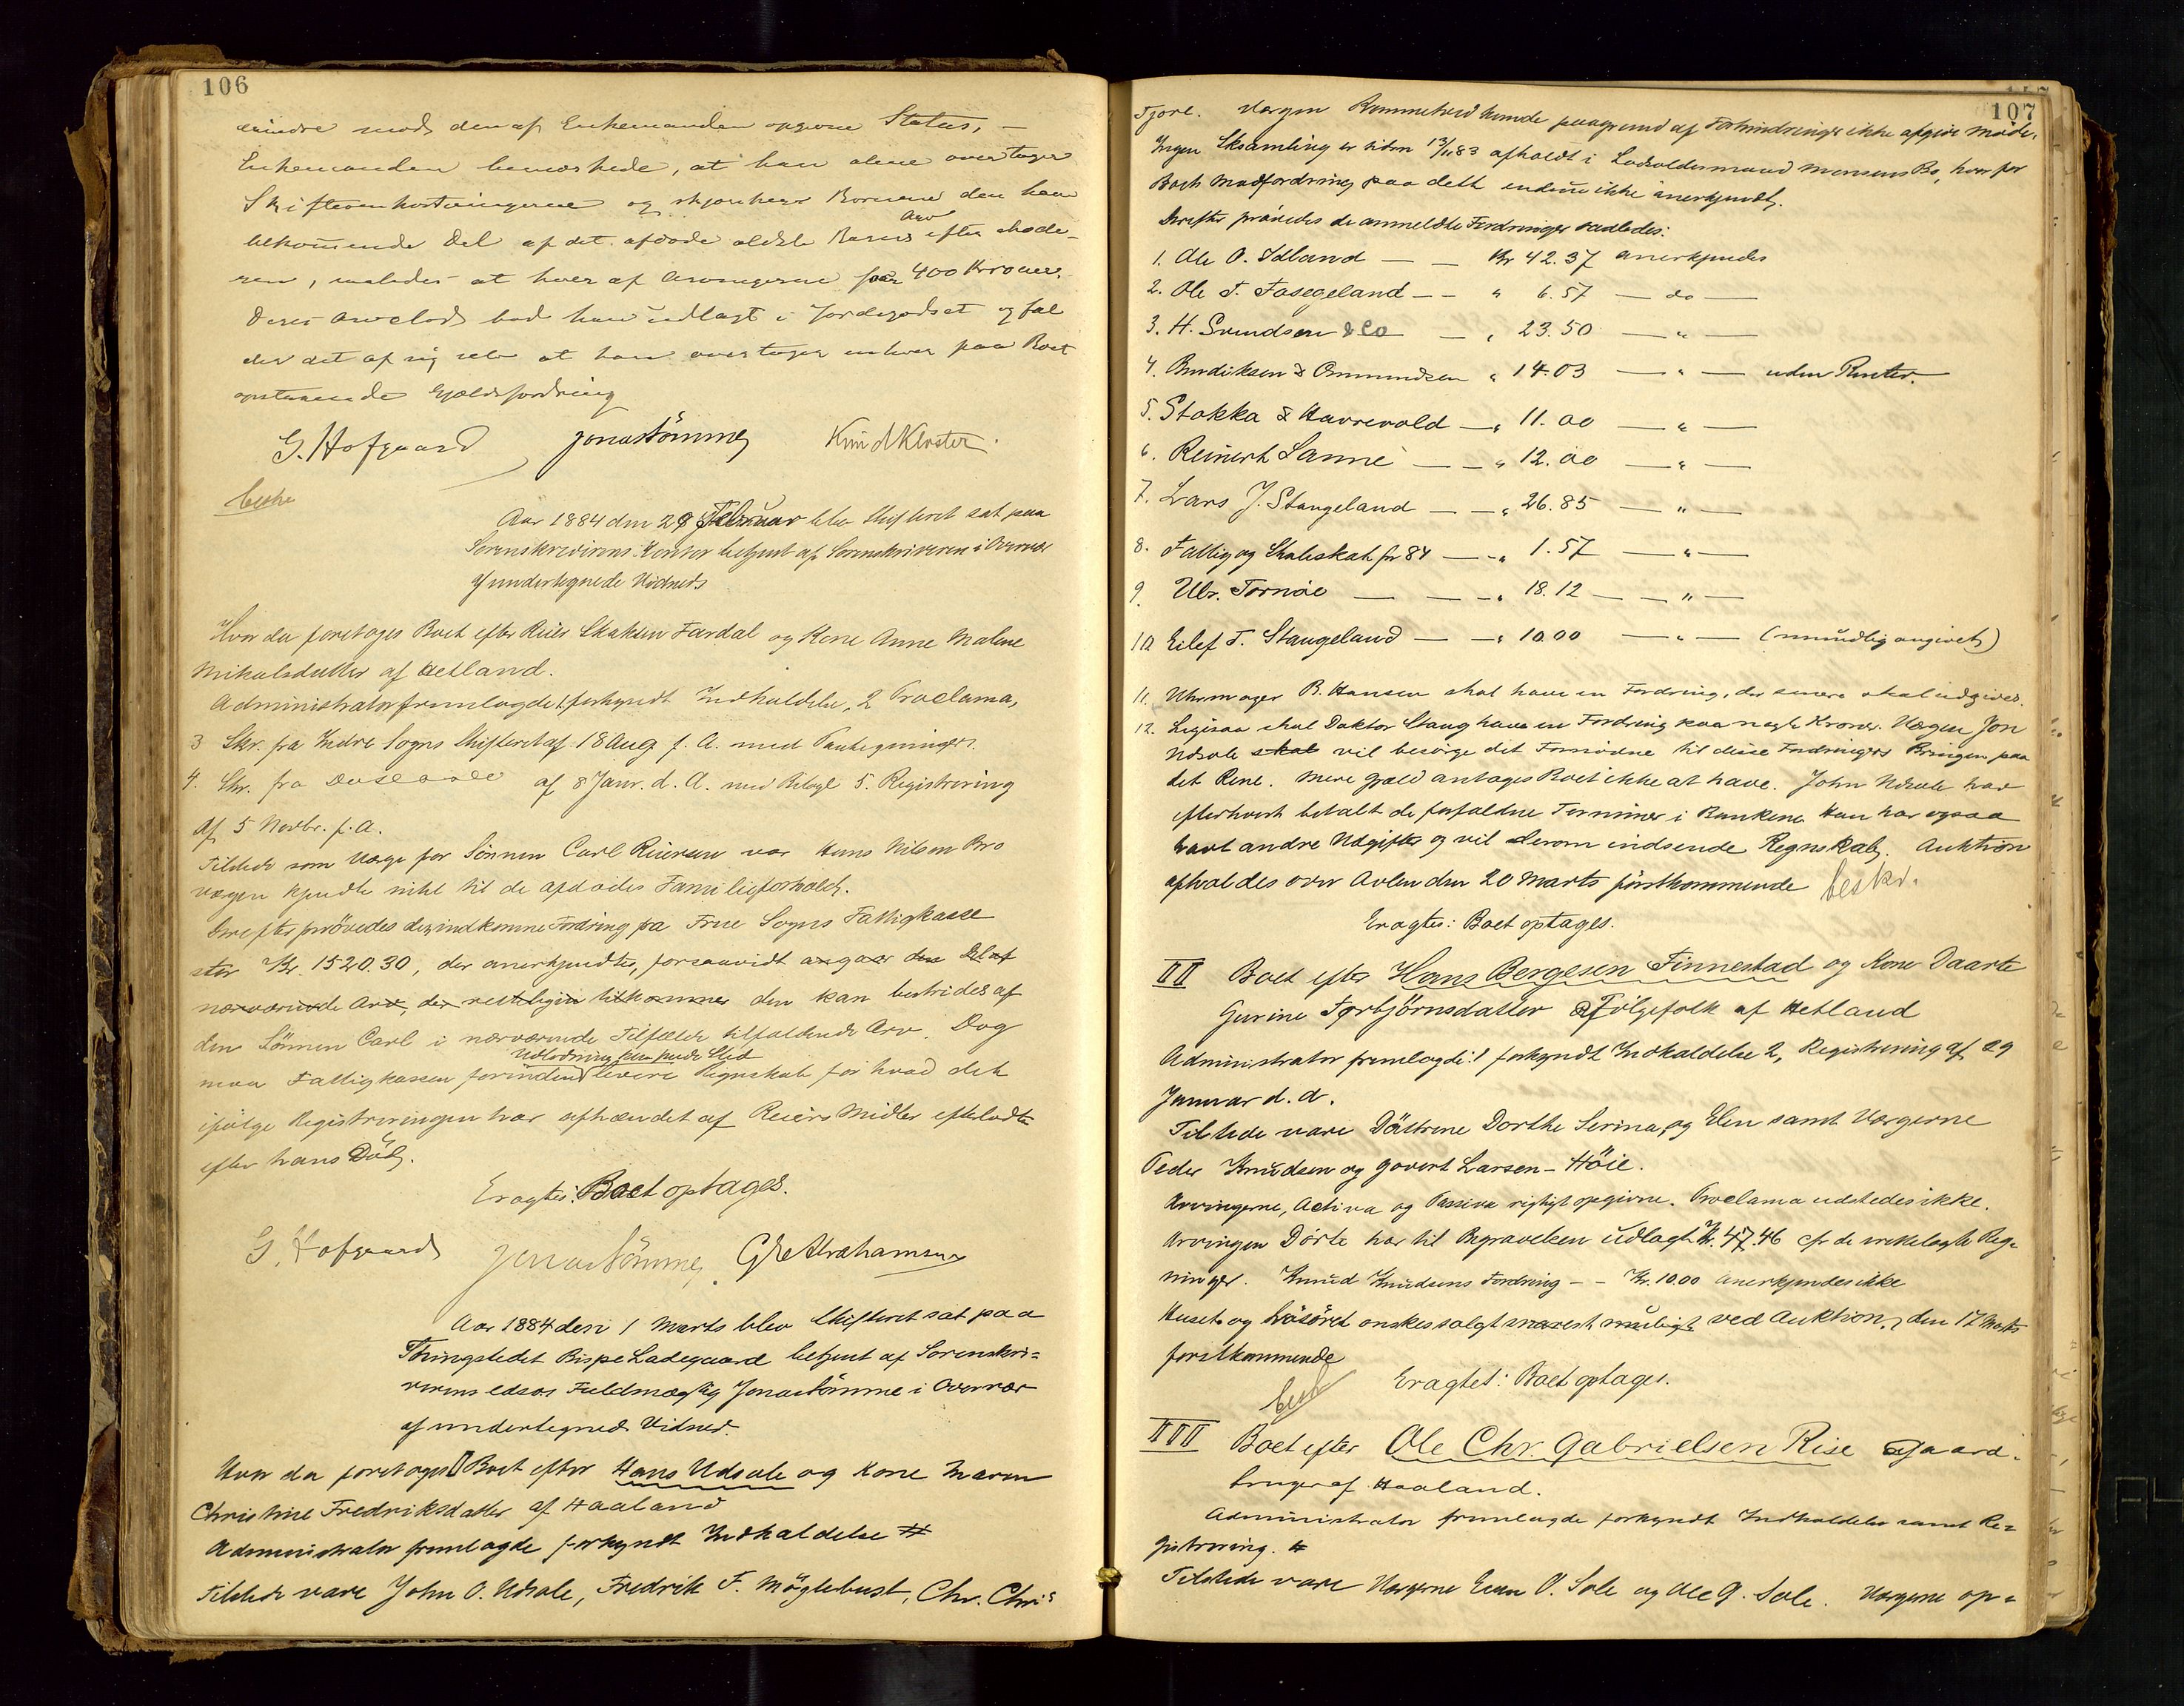 106
erindre mod den af Enkemanden opgivne Status, —
Enkemanden bemærkede, at han alene overtager
Skifteomkostningerne og skjænker Børnene den ham
tilkommende Del af det afdøde ældste Barns Arv efter Mode-
ren, saaledes at hver af Arvingerne faar 400 Kroner.
Deres Arvelod bad han udlagt i Jordegodset og fal
der det af sig selv at han overtager enhver paa Boet
opstaaende Gjældsfordring
G. Hofgaard Jonas Sømme Knud Kloster
beskr
Aar 1884 den 29 Februar blev Skifteret sat paa
Sorenskriverens Kontor betjent af Sorenskriveren i Overvær
af undertegnede Vidner
Hvor da foretoges Boet efter Reier Skaksen Fardal og Kone Anne Malene
Mikalsdatter af Hetland.
Administrator fremlagde 1. forkyndt Indkaldelse, 2 Proclama,
3 Skr. fra Indre Sogns Skifteret af 18 Aug f. A. med Paategninger.
4. Skr. fra af 8 Janr. d. A. med Bilage 5. Registrering
af 5 Novbr. f. A.
Tilstede som Værge for Sønnen Carl Reiersen var Hans Nilsen Bro
Værgen kjendte intet til de afdødes Familieforhold.
Derefter prøvedes den indkomne Fordring fra Frue Sogns Fattigkasse
stor Kr. 1520.30, der anerkjendtes, forsaavidt angaar den Del af
nærværende Arv, der retteligen tilkommer den kan bestrides af
den Sønnen Carl i nærværende Tilfælde tilfaldende Arv. Dog
Udlodning kan finde Sted
maa Fattigkassen forinden levere Regnskab for hvad det
ifølge Registreringen har afhændet af Reiers Midler efterladte
efter hans Død.
Eragtes: Boet optages.
G. Hofgaard Jonas Sømme G Abrahamsen
Aar 1884 den 1 Marts blev Skifteret sat paa
Thingstedet Bispeladegaard betjent af Sorenskri-
verens edsvs Fuldmægtig Jonas Sømme i Overvær
af undertegnede Vidner.
Hvor da foretoges I Boet efter Hans Udsole og Kone Maren
Christine Fredriksdatter af Haaland
Administrator fremlagde forkyndt Indkaldelse #
Tilstede vare John O. Udsole, Fredrik F. Møglebust, Chr. Chri-
107
Tjore. Værgen kunde paagrund af Forhindringer ikke afgive Møde.
Ingen Sksamling er siden 13/11 83 afholdt i Ladsoldermand Monsens Bo, hvorfor
Boets Modfordring paa dette endnu ikke anerkjendt.
Derefter prøvedes de anmeldte Fordringer saaledes:
1. Ole O. Idland — — Kr 42.37 anerkjendes
2. Ole T. Fosegeland — — " 6.57 — do —
3. H. Svendsen & Co — " 23.50 — " —
4. Bendiksen & Ommundsen " 14.03 — " — uden Renter.
5. Stokka & Havrevold — " 11.00 — " —
6. Reinert Sanne — — " 12.00 — " —
7. Lars J. Stangeland — — " 26.85 — " —
8. Fattig og Skoleskat for 84 — — " 1.57 — " —
9. Ulr. Tornøe — — — " 18.12 — — " —
10. Eilef T. Stangeland — — " 10.00 — " — (mundlig angivet)
11. Uhrmager B. Hansen skal have en Fordring, der senere skal udgives.
12. Ligesaa skal Doktor Stang have en Fordring paa nogle Kroner. Værgen Jon
Udsole skal vil besørge det Fornødne til disse Fordringers Bringen paa
det Rene. Mere Gjæld antages Boet ikke at have. John Udsole har
efterhvert betalt de forfaldne Terminer i Bankene. Han har ogsaa
havt andre Udgifter og vil derom indsende Regnskab. Auktion
afholdes over Avlen den 20 Marts førstkommende beskr.
Eragtes: Boet optages.
II Boet efter Hans Bergesen Finnestad og Kone Daarte
Gurine Torbjørnsdatter Følgefolk af Hetland
Administrator fremlagde: 1 forkyndt Indkaldelse 2, Registrering af 29
Januar d. A.
Tilstede vare Døttrene Dorthe Serina og Elen samt Værgerne
Peder Knudsen og Govert Larsen - Høie.
Arvingerne, Activa og Passiva rigtigt opgivne. Proclama udstedes ikke.
Arvingen Dorte har til Begravelsen udlagt Kr. 47.46 cfr de vedlagte Reg-
ninger. Knud Knudsens Fordring — — Kr. 10.00 anerkjendes ikke
Huset og Løsøret ønskes solgt snarest muligt ved Auktion, den 17 Marts
førstkommende
besk Eragtet: Boet optages.
III Boet efter Ole Chr. Gabrielsen Rise Gaard-
bruger af Haaland.
Administrator fremlagde forkyndt Indkaldelse samt Re-
gistrering. #
Tilstede vare Værgerne Enn O. Sole og Ole G. Sole. Værgerne op-